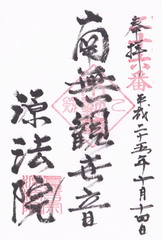 奉拝
平成二十五年十月十四日
南無観世音
源法院